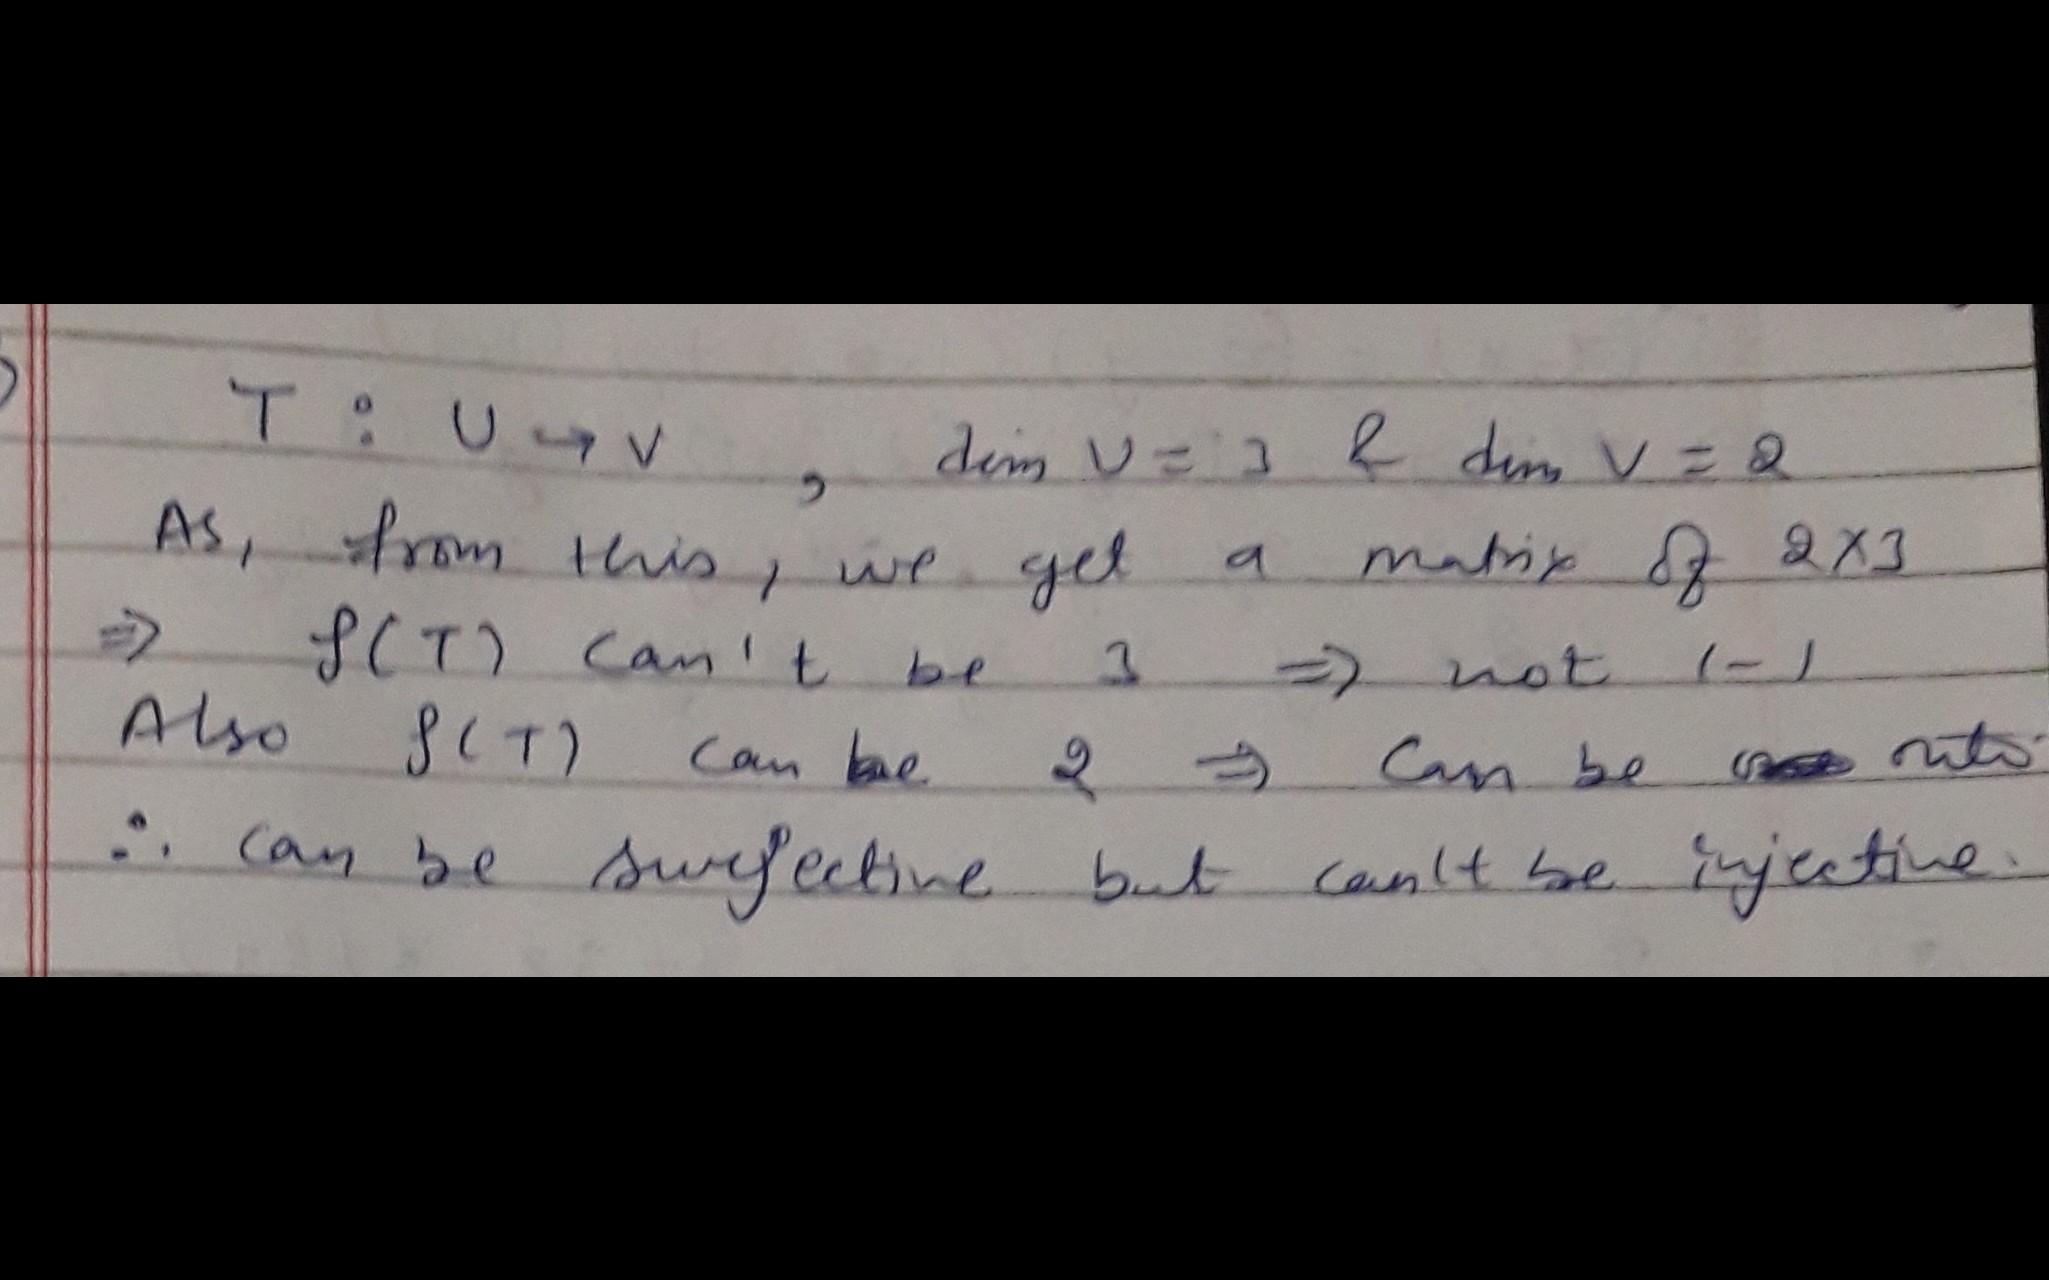 T : U → V , dim U = 3 & dim V = 2
As, from this, we get a matrix of 2×3
⇒ ρ(T) can't be 3 ⇒ not 1-1
Also ρ(T) can be 2 ⇒ Can be onto
∴ can be surjective but can't be injective.